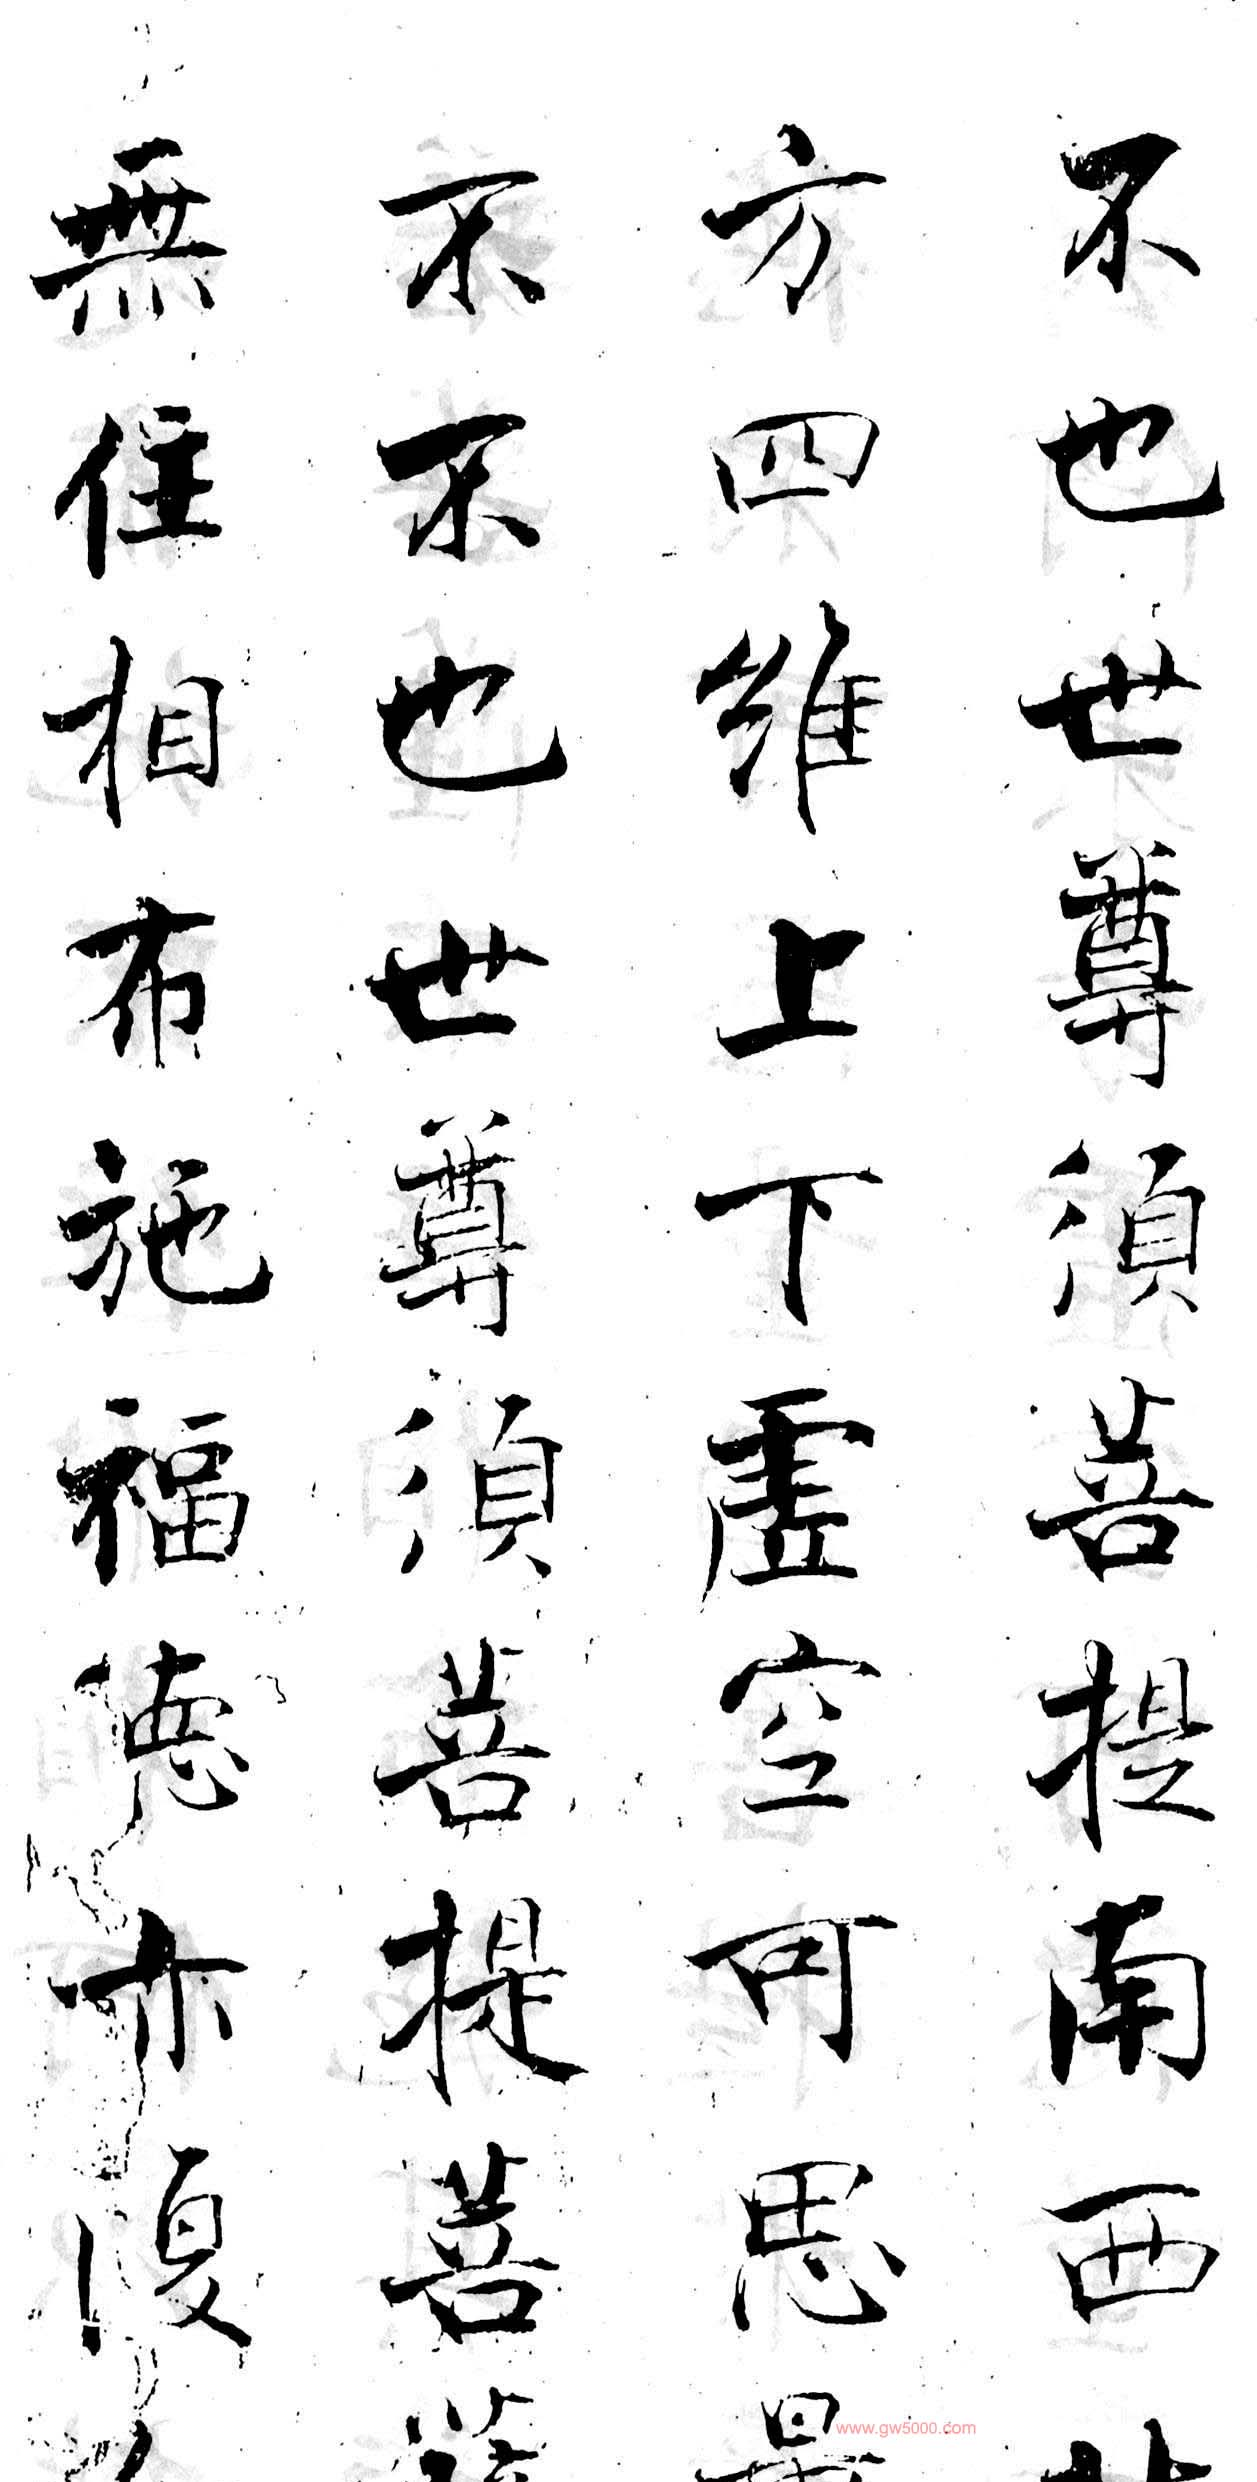 不也世尊須菩提南西北
方四維上下虛空可思量
不不也世尊須菩提菩薩
無住相布施福德亦復
www.gw5000.com